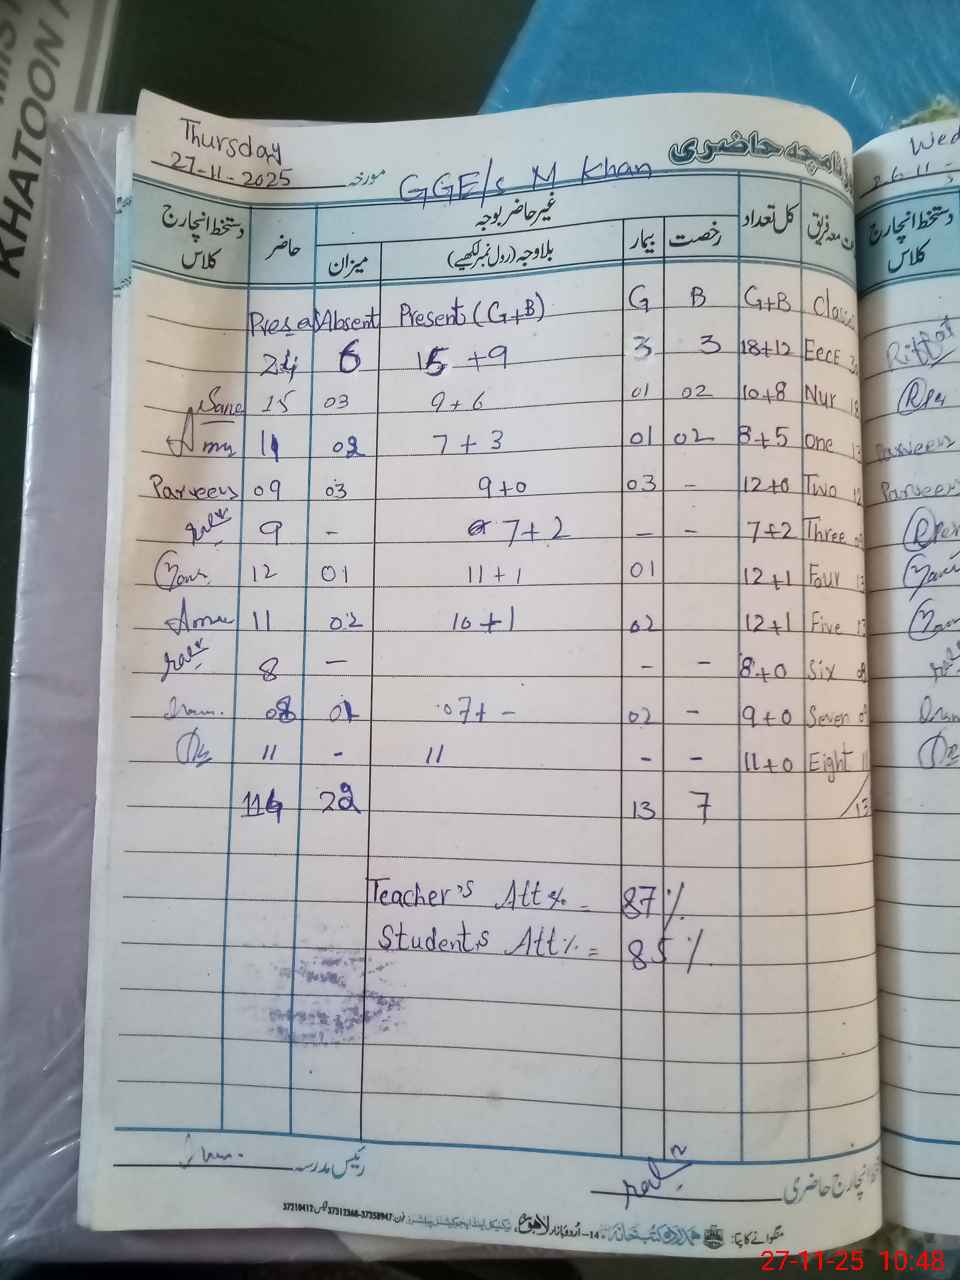 KHATOON
Thursday
27-11-2025 مورخہ
GGE/s M Khan
روزنامچہ حاضری
دستخط انچارج کلاس حاضر غیر حاضر بوجہ کل تعداد
میزان بلاوجہ (رول نمبر لکھیے) بیمار رخصت
Absent Present (G+B) G B G+B
24 6 15+9 3 3 18+12 EccE
15 03 9+6 01 02 10+8 Nur 18
11 02 7+3 01 02 8+5 One 13
Parveen 09 03 9+0 03 - 12+0 Two 12
9 - 7+2 - - 7+2 Three
12 01 11+1 01 12+1 Four 13
11 02 10+1 02 12+1 Five 13
8 - - - 8+0 Six
08 01 07+- 02 - 9+0 Seven
11 - 11 - - 11+0 Eight 11
114 22 13 7
Teacher's Att % = 87 %
Students Att % = 85 %
رئیس مدرسہ
انچارج حاضری
منگوانے کا پتا: کتب خانہ 14-اردو بازار لاہور
Wed
دستخط انچارج کلاس
Parveen
Parveen
27-11-25 10:48